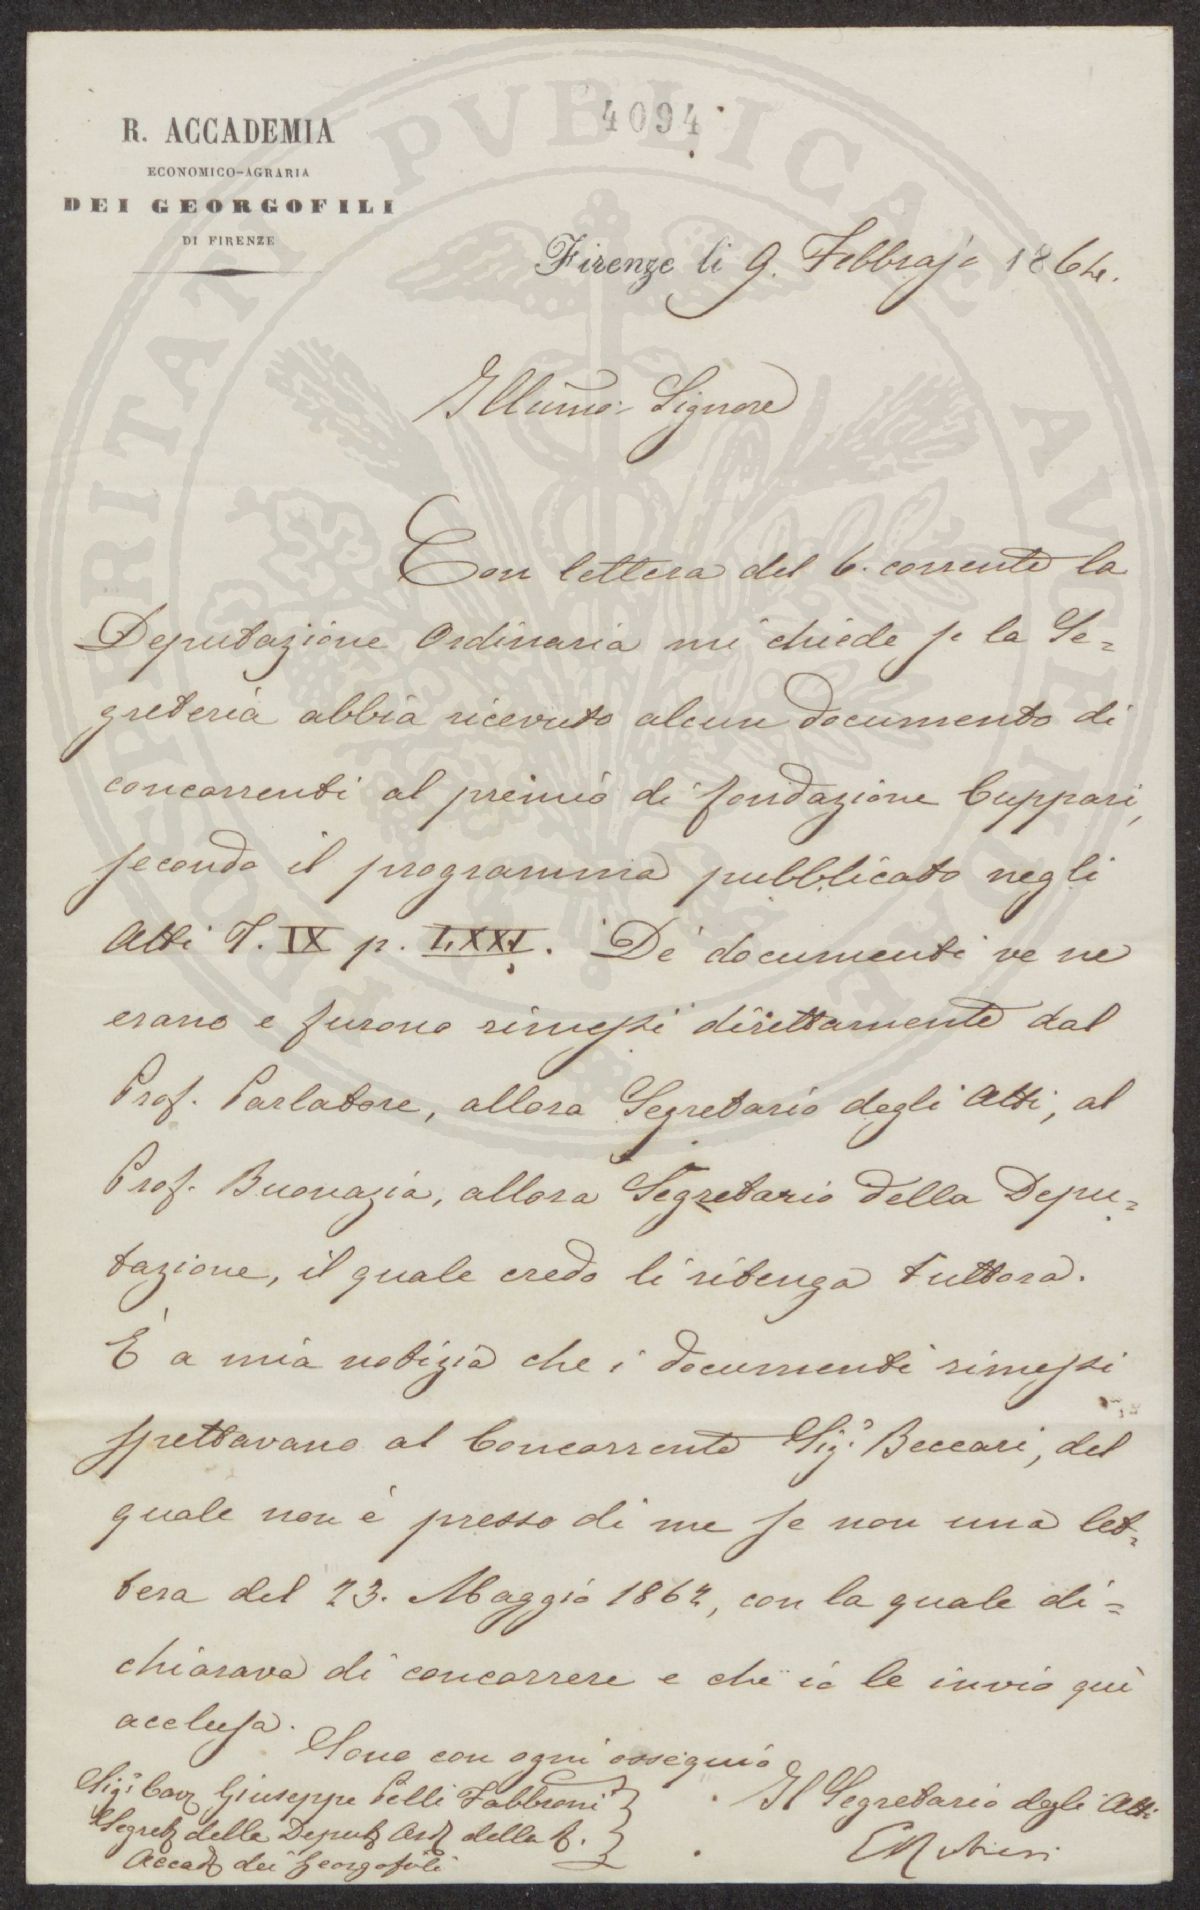 4094
R. ACCADEMIA
ECONOMICO-AGRARIA
DEI GEORGOFILI
DI FIRENZE
Firenze li 9. Febbrajo 1864.
Illumo. Signore
Con lettera del 6. corrente la
Deputazione Ordinaria mi chiede se la Se=
greteria abbia ricevuto alcun documento di
concorrenti al premio di fondazione Cuppari,
secondo il programma pubblicato negli
Atti T. IX p. LXXI. De' documenti ve ne
erano e furono rimessi direttamente dal
Prof. Parlatore, allora Segretario degli Atti, al
Prof. Buonazia, allora Segretario della Depu=
tazione, il quale credo li ritenga tuttora.
È a mia notizia che i documenti rimessi
spettavano al Concorrente Sig.r Beccari, del
quale non è presso di me se non una let=
tera del 23. Maggio 1862, con la quale di=
chiarava di concorrere e che io le invio quì
acclusa.
Sono con ogni ossequio
Sig.r Cav. Giuseppe Pelli Fabbroni
Segret. della Deput. Ord. della R.
Accad. dei Georgofili
Il Segretario degli Atti
PROSPERITATI PVBLICAE AVGENDAE